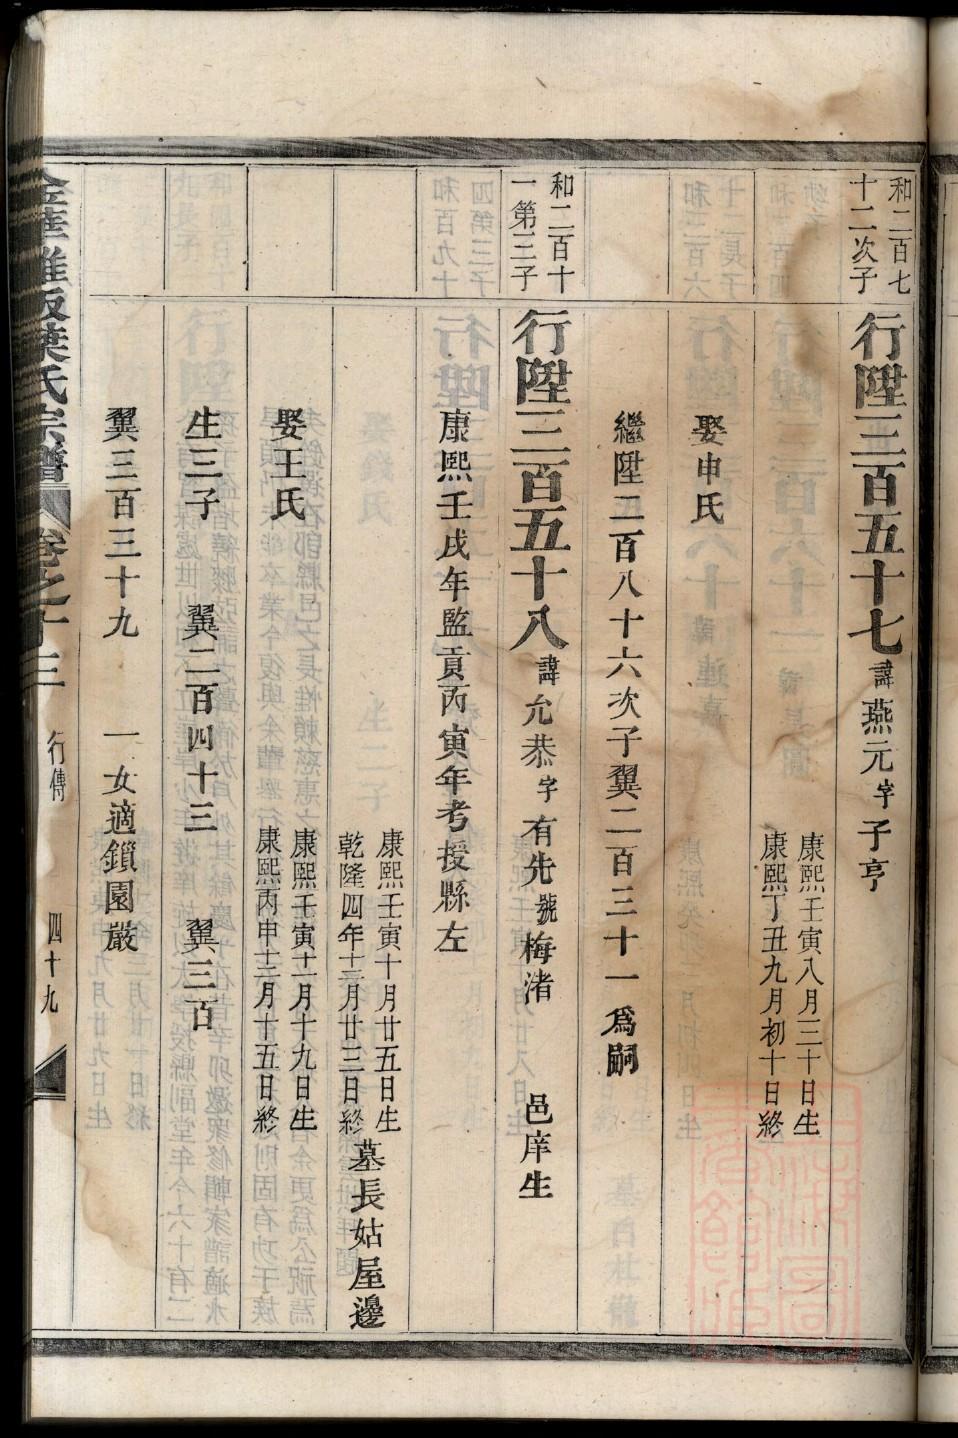 和二百七
十二次子
行陞三百五十七 諱燕元 字子亨
康熙壬寅八月三十日生
康熙丁丑九月初十日終
娶申氏
繼陞二百八十六次子翼二百三十一為嗣
和二百十
一第三子
行陞三百五十八 諱允恭 字有先 號梅渚 邑庠生
康熙壬戌年監貢丙寅年考授縣左
康熙壬寅十月廿五日生
乾隆四年十二月廿三日終
墓長姑屋邊
娶王氏
康熙壬寅十二月十九日生
康熙丙申十二月十五日終
生三子 翼二百四十三 翼三百
翼三百三十九 一女適鎖園嚴
葉氏宗譜 卷之十三 行傳 四十九